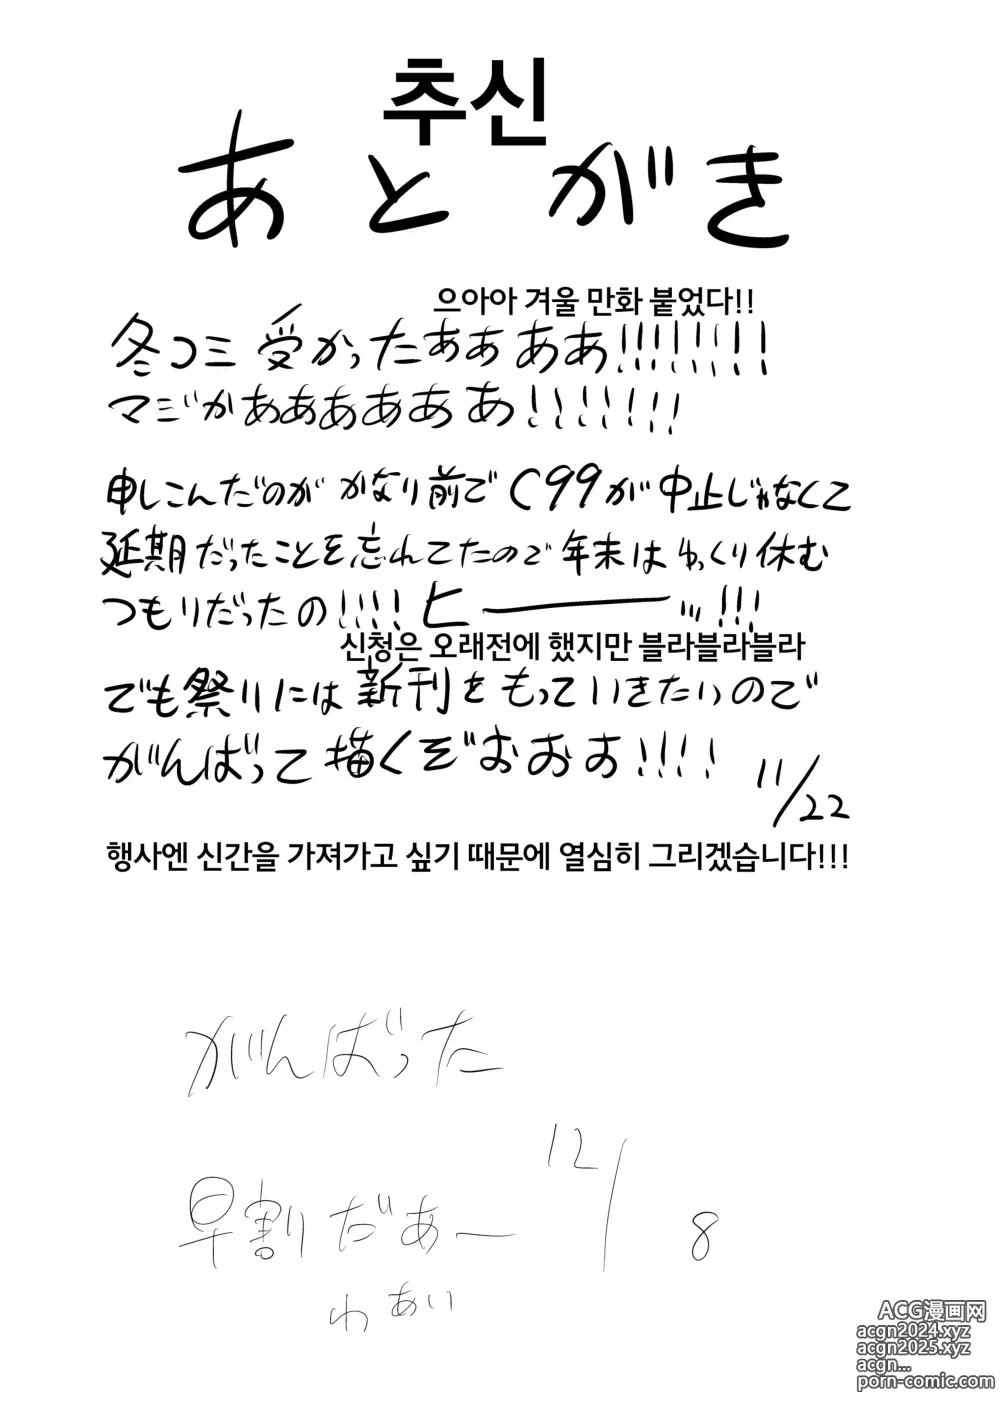 추신
あとがき
으아아 겨울 만화 붙었다!!
冬コミ 受かったぁぁああ!!!!!!!!
マジかあああああ あ!!!!!!!
申しこんだのが かなり前で C99が中止じゃなくて
延期だったことを忘れてたので年末はゆっくり休む
つもりだったの!!!!ヒーーッ!!!
신청은 오래전에 했지만 블라블라블라
でも祭りには新刊をもっていきたいので
がんばって描くぞおおお!!!!
11/22
행사엔 신간을 가져가고 싶기 때문에 열심히 그리겠습니다!!!
がんばった
12/8
早割だあー
わあい
ACG漫画网
acgn2024.xyz
acgn2025.xyz
acgn...
porn-comic.com